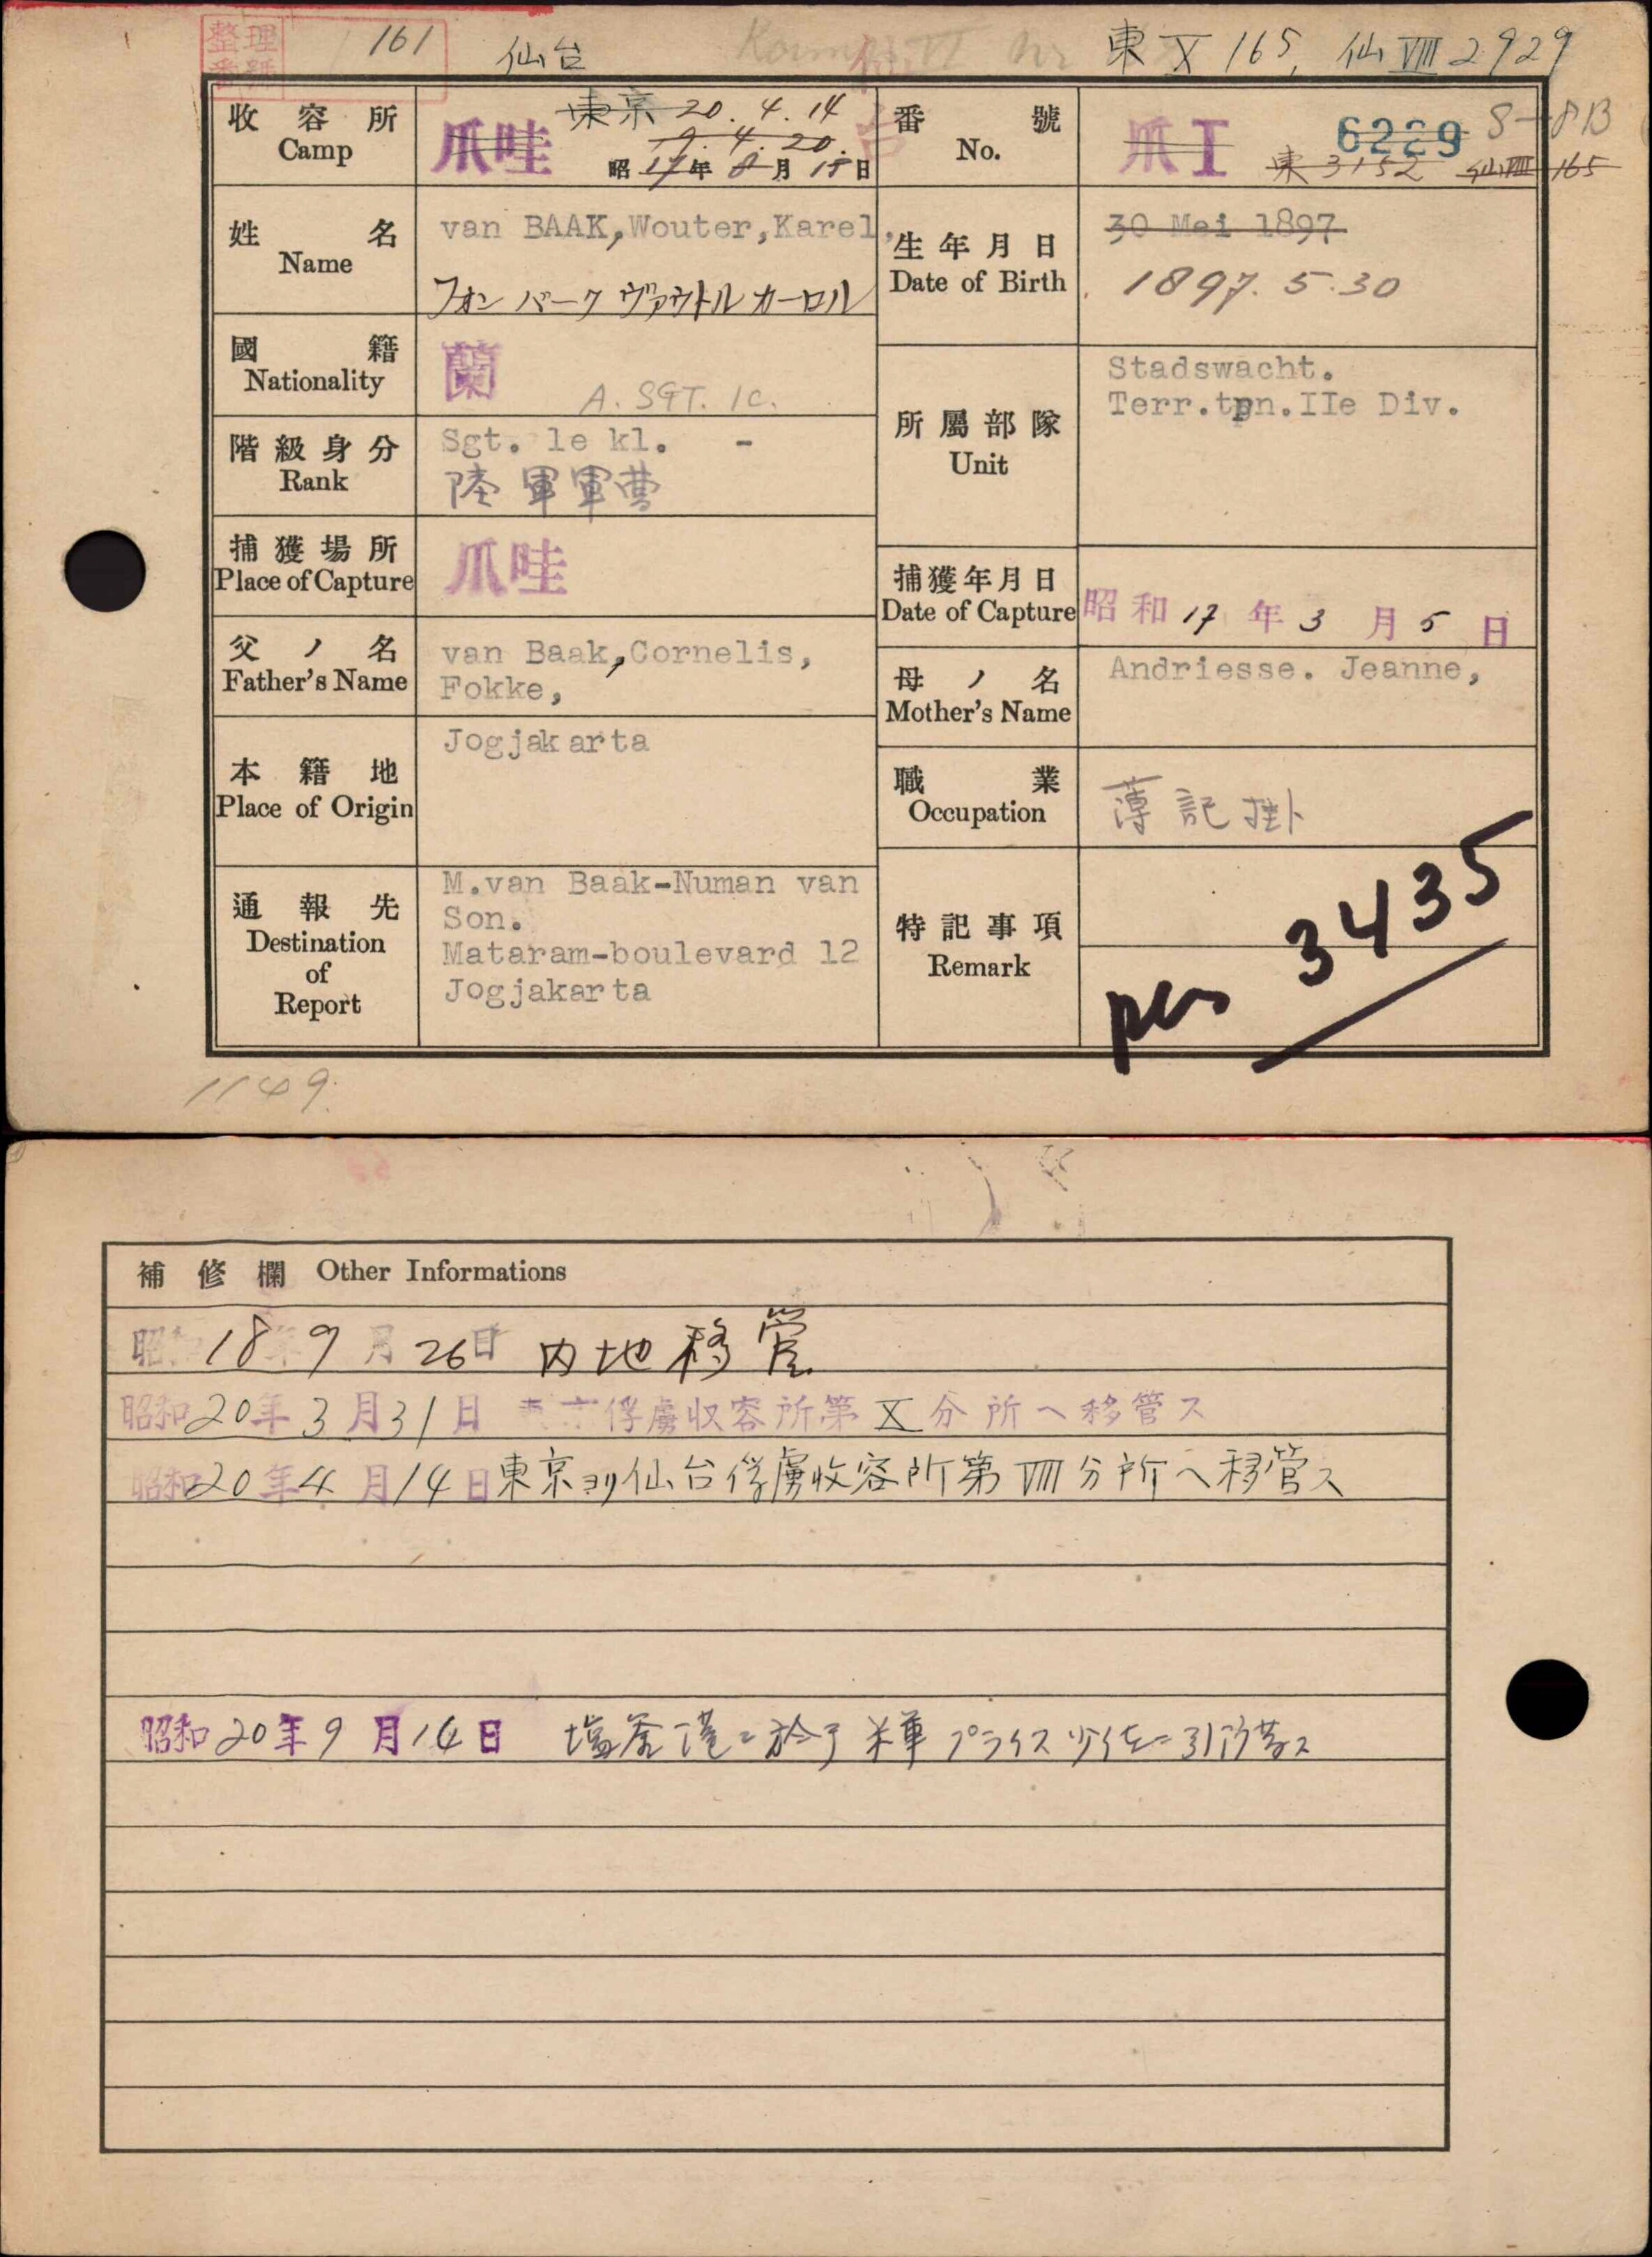 整理番号 161 仙台 東 X 165, 仙 VIII 2929
收容所 Camp
爪哇 東京 20.4.14
9.4.20.
昭17年8月15日
番號 No.
爪 I 6229 8-8B
東 3152 仙VIII 165
姓名 Name
van BAAK,Wouter,Karel,
フォン バーク ヴァウトル カーロル
生年月日 Date of Birth
30 Mei 1897
1897.5.30
國籍 Nationality
蘭
A. SGT. 1C.
階級身分 Rank
Sgt. 1e kl. -
陸軍軍曹
所屬部隊 Unit
Stadswacht.
Terr.tpn.IIe Div.
捕獲場所 Place of Capture
爪哇
捕獲年月日 Date of Capture
昭和17年3月5日
父ノ名 Father's Name
van Baak,Cornelis,
Fokke,
母ノ名 Mother's Name
Andriesse. Jeanne,
本籍地 Place of Origin
Jogjakarta
職業 Occupation
薄記掛
通報先 Destination of Report
M.van Baak-Numan van
Son.
Mataram-boulevard 12
Jogjakarta
特記事項 Remark
3435
1149.
補修欄 Other Informations
昭和18年9月26日 内地移管
昭和20年3月31日 東京俘虜収容所第X分所へ移管ス
昭和20年4月14日東京ヨリ仙台俘虜收容所第VIII分所へ移管ス
昭和20年9月14日 塩釜港ニ於テ米軍プライス少佐ニ引渡ス